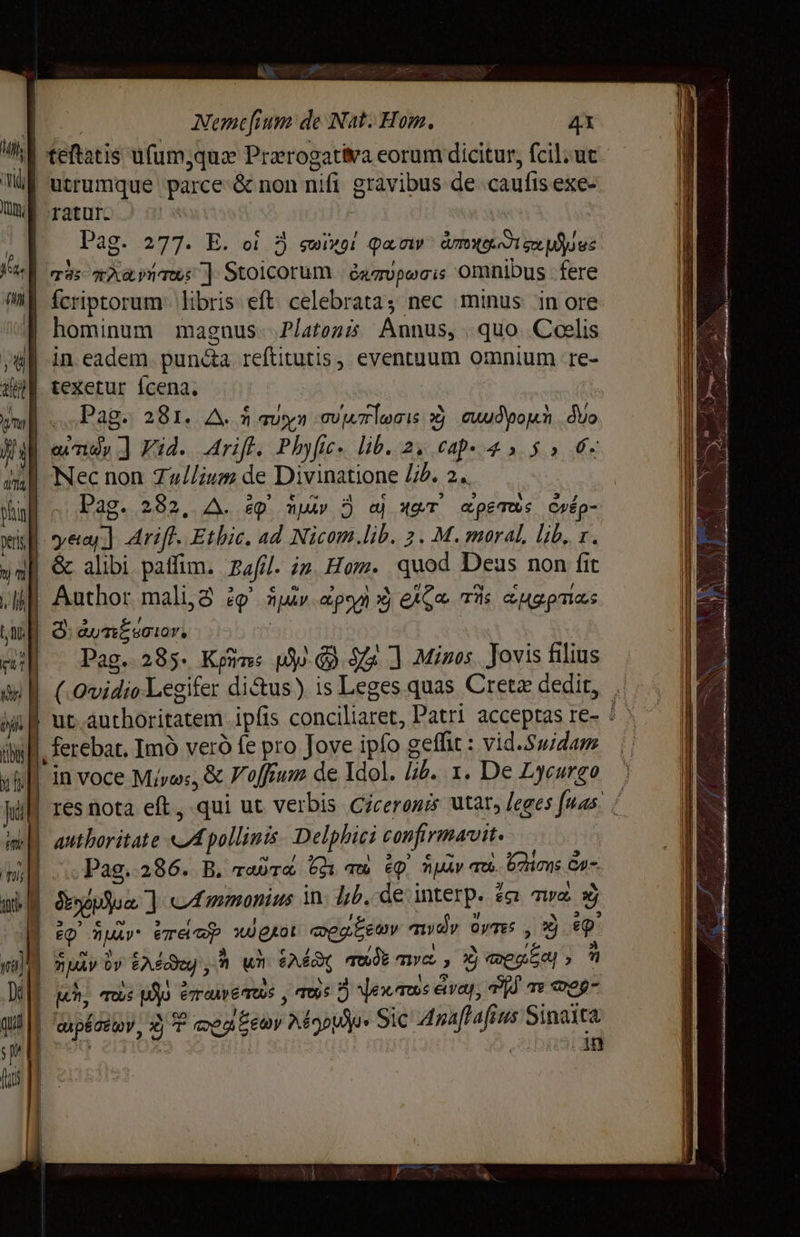 Nemesium de Nat. Hom. 41
testatis usum, quæ Prærogativa eorum dicitur, scil. ut
utrumque parce & non nisi gravibus de causis exe-
ratur.
Pag. 277. E. οἱ ϳ στωϊκοί φασιν ἀποκαθισαμένες
τὰς πλανήτας ] Stoicorum ἐκπύρωσις omnibus fere
scriptorum libris est celebrata; nec minus in ore
hominum magnus Platonis Annus, quo Cœlis
in eadem puncta restitutis, eventuum omnium re-
texetur scena.
Pag. 281. A. ἡ τύχη σύμπτωσις ϗ συνδρομὴ δύο
αἰτιῶν ] Vid. Arist. Physic. lib. 2, cap. 4, 5, 6.
Nec non Tullium de Divinatione lib. 2.
Pag. 282, A. ἐφ' ἡμῖν ϳ αἱ κατ' ἀρετὰς ἐνέρ-
γειαι ] Arist. Ethic. ad Nicom. lib. 3. M. moral. lib. 1.
& alibi passim. Basil. in Hom. quod Deus non sit
Author mali, ὃ ἐφ' ἡμῖν ἀρχὴ ϗ ῥίζα τῆς ἁμαρτίας
ὃ αὐτεξέσιον.
Pag. 285. Κρῆτας μὲν ὁ διὰ ] Minos Jovis filius
( Ovidio Legifer dictus ) is Leges quas Cretæ dedit,
ut authoritatem ipsis conciliaret, Patri acceptas re-
ferebat. Imò verò se pro Jove ipso gessit : vid. Suidam
in voce Μίνως, & Vossium de Idol. lib. 1. De Lycurgo
res nota est, qui ut verbis Ciceronis utar, leges suas
authoritate Apollinis Delphici confirmavit.
Pag. 286. B. ταῦτα ἐστι τὰ ἐφ' ἡμῖν τὰ ἐπίσης ἐν-
δεχόμενα ] Ammonius in lib. de interp. ἔστι τινὰ ϗ
ἐφ' ἡμῖν· ἐπείπερ κύριοι πράξεων τινῶν ὄντες, ϗ ἐφ'
ἡμῖν ὂν ἑλέσθαι, ἢ μὴ ἑλέσθαι τόδε τινα, ϗ πρᾶξαι, ἢ
μὴ, τοὺς μὲν ἐπαινετοὺς, τοὺς ϳ ψεκτοὺς εἶναι, τῶν τε προ-
αιρέσεων, ϗ τ πράξεων λέγομεν. Sic Anastasius Sinaita
in